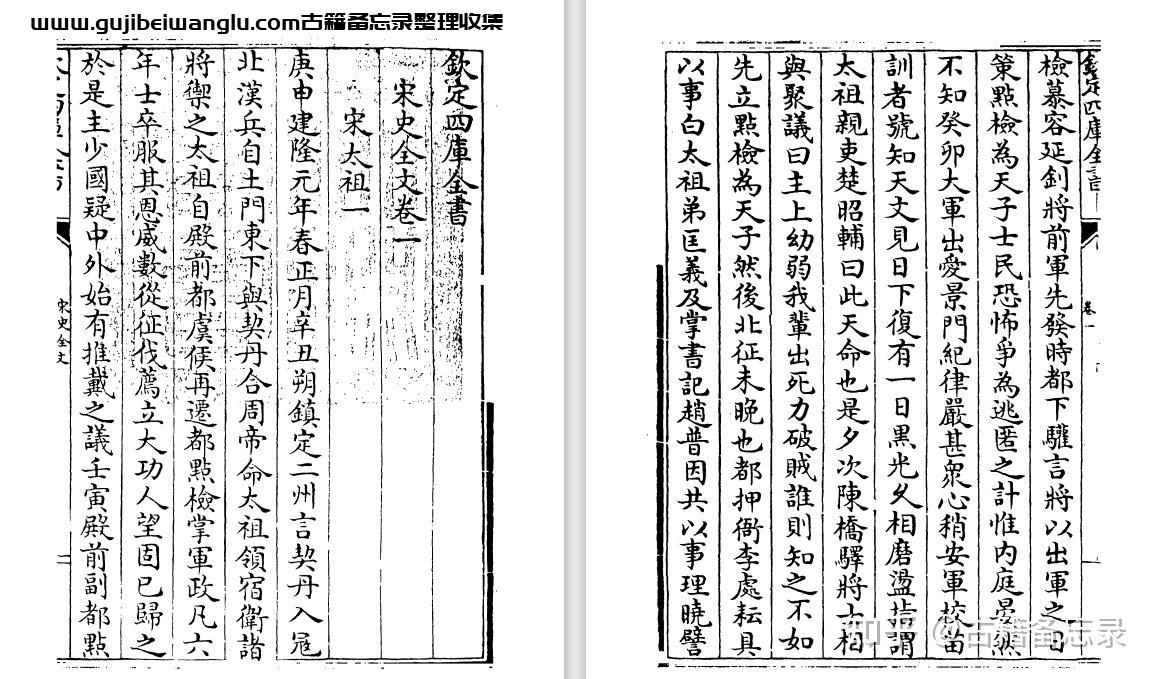 www.gujibeiwanglu.com古籍备忘录整理收集
欽定四庫全書
宋史全文卷一
宋太祖一
庚申建隆元年春正月辛丑朔鎮定二州言契丹入冦
北漢兵自土門東下與契丹合周帝命太祖領宿衛諸
將禦之太祖自殿前都虞候再遷都點檢掌軍政凡六
年士卒服其恩威數從征伐薦立大功人望固已歸之
於是主少國疑中外始有推戴之議壬寅殿前副都點
宋史全文
欽定四庫全書
卷一
檢慕容延釗將前軍先發時都下驩言將以出軍之日
策點檢為天子士民恐怖爭為逃匿之計惟内庭晏然
不知癸卯大軍出愛景門紀律嚴甚衆心稍安軍校苗
訓者號知天文見日下復有一日黑光久相磨盪指謂
太祖親吏楚昭輔曰此天命也是夕次陳橋驛將士相
與聚議曰主上幼弱我輩出死力破賊誰則知之不如
先立點檢為天子然後北征未晚也都押衙李處耘具
以事白太祖弟匡義及掌書記趙普因共以事理曉譬
知乎 @古籍备忘录